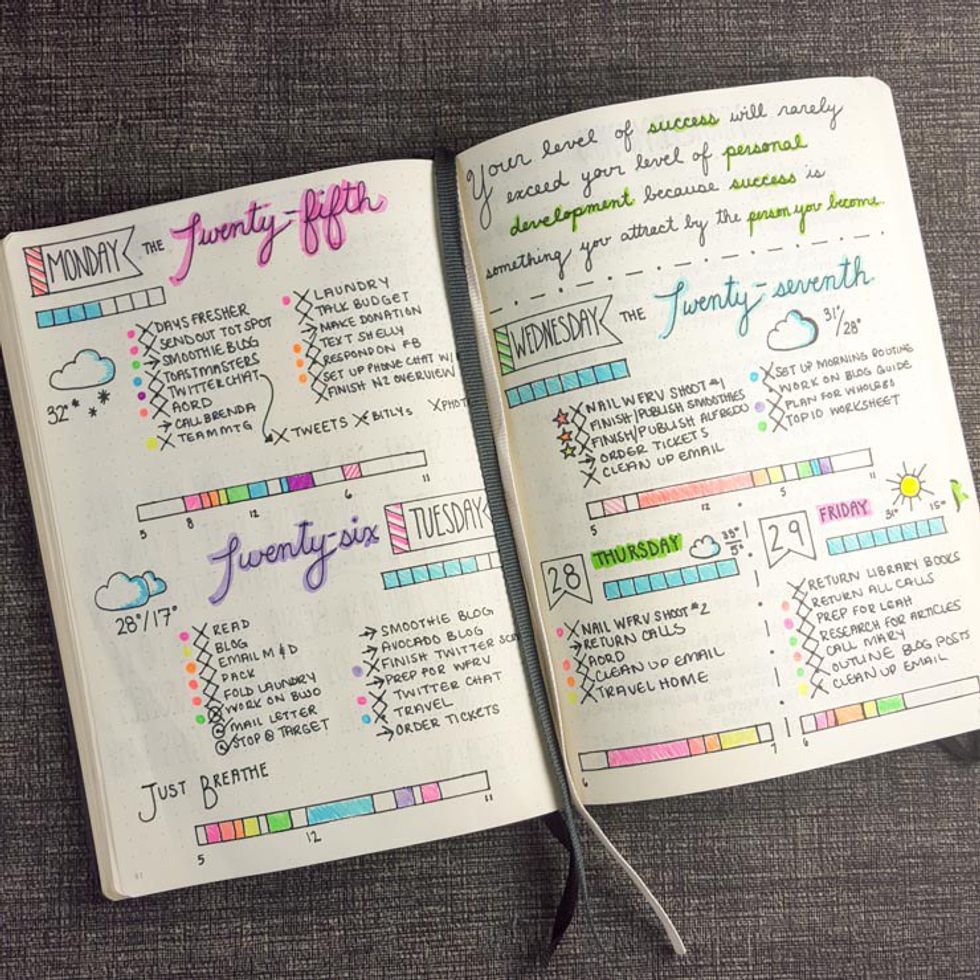 MONDAY THE Twenty-fifth
DAYS FRESHER
SENDOUT TOT SPOT
SMOOTHIE BLOG
TOASTMASTERS
TWITTER CHAT
AORD
CALL BRENDA
TEAM MTG
LAUNDRY
TALK BUDGET
MAKE DONATION
TEXT SHELLY
RESPOND ON FB
SET UP PHONE CHAT W/
FINISH N2 OVERVIEW
TWEETS X BITLYS X PHOT
32°
5 8 12 6 11
Twenty-six TUESDAY
28°/17°
READ
BLOG
EMAIL M & D
PACK
FOLD LAUNDRY
WORK ON BUJO
MAIL LETTER
STOP @ TARGET
SMOOTHIE BLOG
AVOCADO BLOG
FINISH TWITTER SCH
PREP FOR WFRV
TWITTER CHAT
TRAVEL
ORDER TICKETS
JUST BREATHE
5 12 11
Your level of success will rarely
exceed your level of personal
development because success is
something you attract by the person you become.
WEDNESDAY THE Twenty-seventh
31°/28°
NAIL WFRV SHOOT #1
FINISH/PUBLISH SMOOTHIES
FINISH/PUBLISH ALFREDO
ORDER TICKETS
CLEAN UP EMAIL
SET UP MORNING ROUTINE
WORK ON BLOG GUIDE
PLAN FOR WHOLE65
TOP 10 WORKSHEET
5 12 5 11
28 THURSDAY
35°/5°
NAIL WFRV SHOOT #2
RETURN CALLS
AORD
CLEAN UP EMAIL
TRAVEL HOME
6 7
29 FRIDAY
31° 15°
RETURN LIBRARY BOOKS
RETURN ALL CALLS
PREP FOR LEAH
RESEARCH FOR ARTICLES
CALL MARY
OUTLINE BLOG POSTS
CLEAN UP EMAIL
6